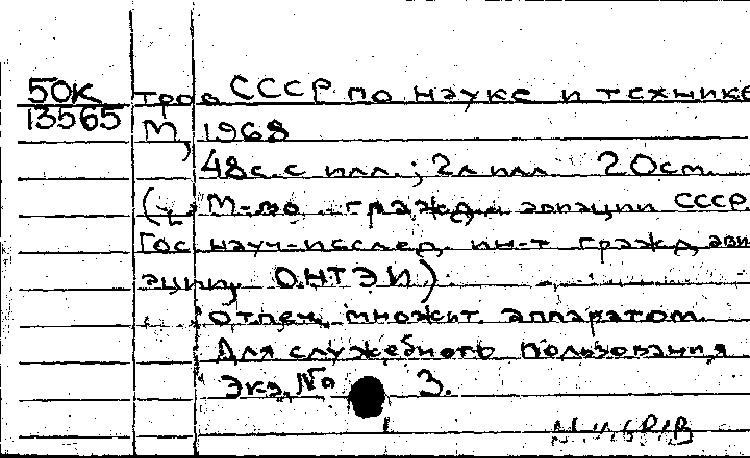 50К тров СССР по науке и технике
13565 М, 1968
48с. с илл.; 2л илл 20см.
М-во гражд. авиации СССР
Гос науч-исслед. ин-т гражд ави
ации, ОНТЭИ)
отпеч. множит. аппаратом.
Для служебного пользования
Экз. № 3.